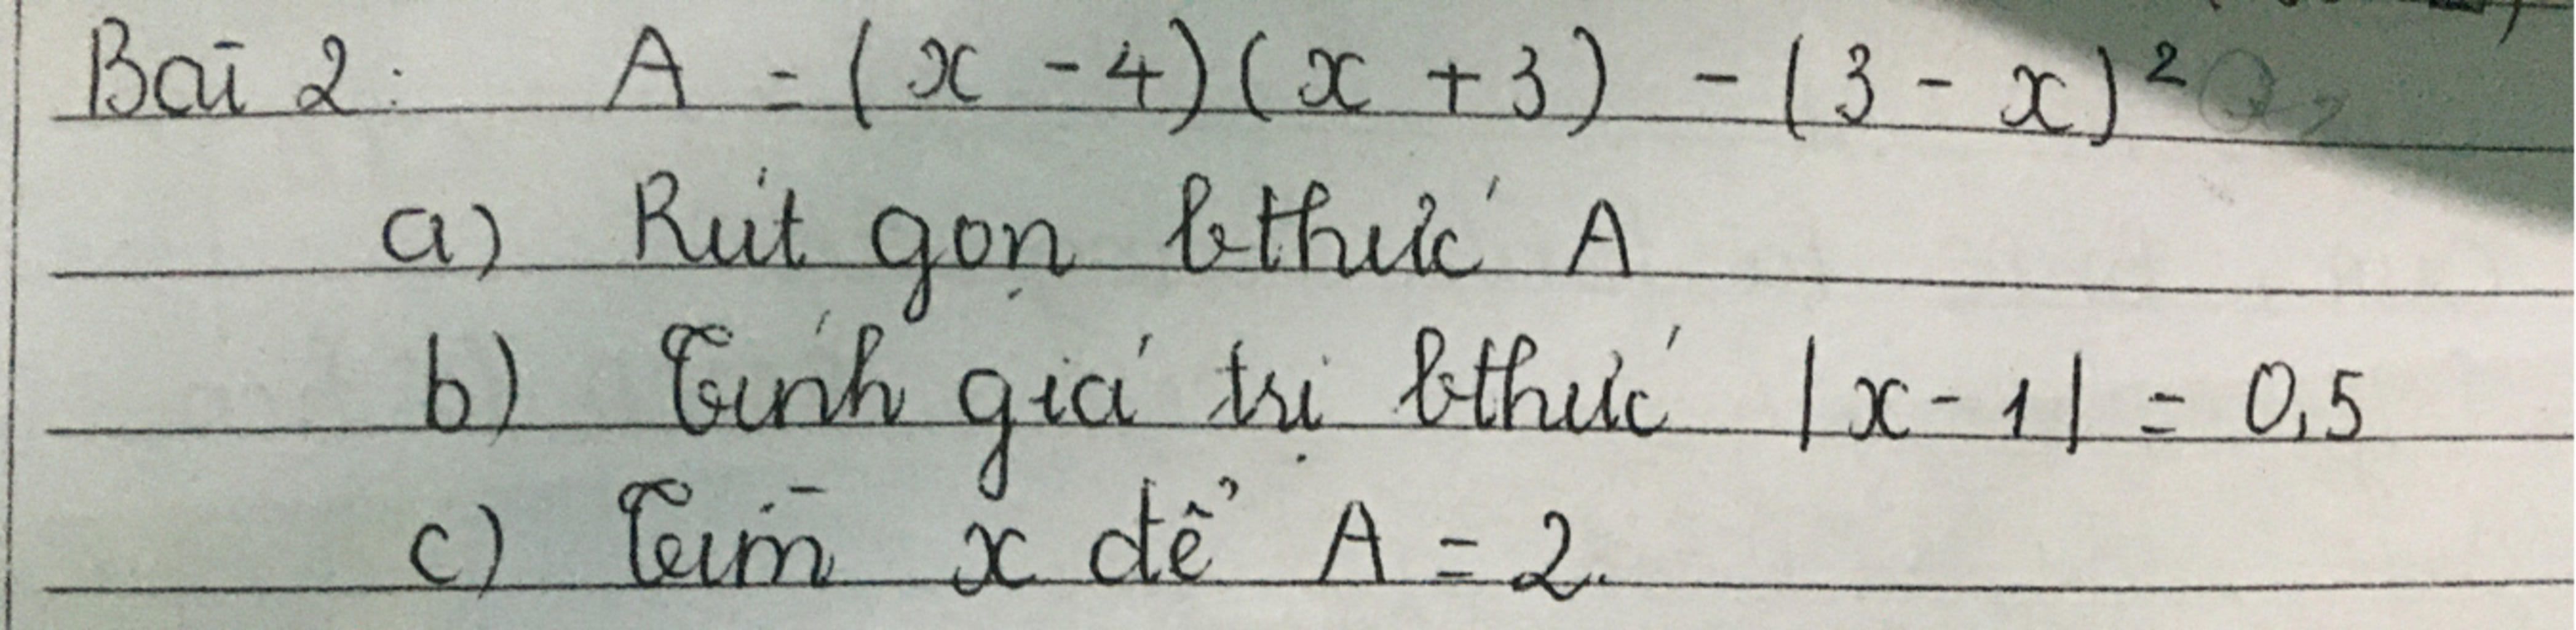 Bài 2: A = (x - 4)(x + 3) - (3 - x)²
a) Rút gọn bthức A
b) Tính giá trị bthức |x - 1| = 0,5
c) Tìm x để A = 2.